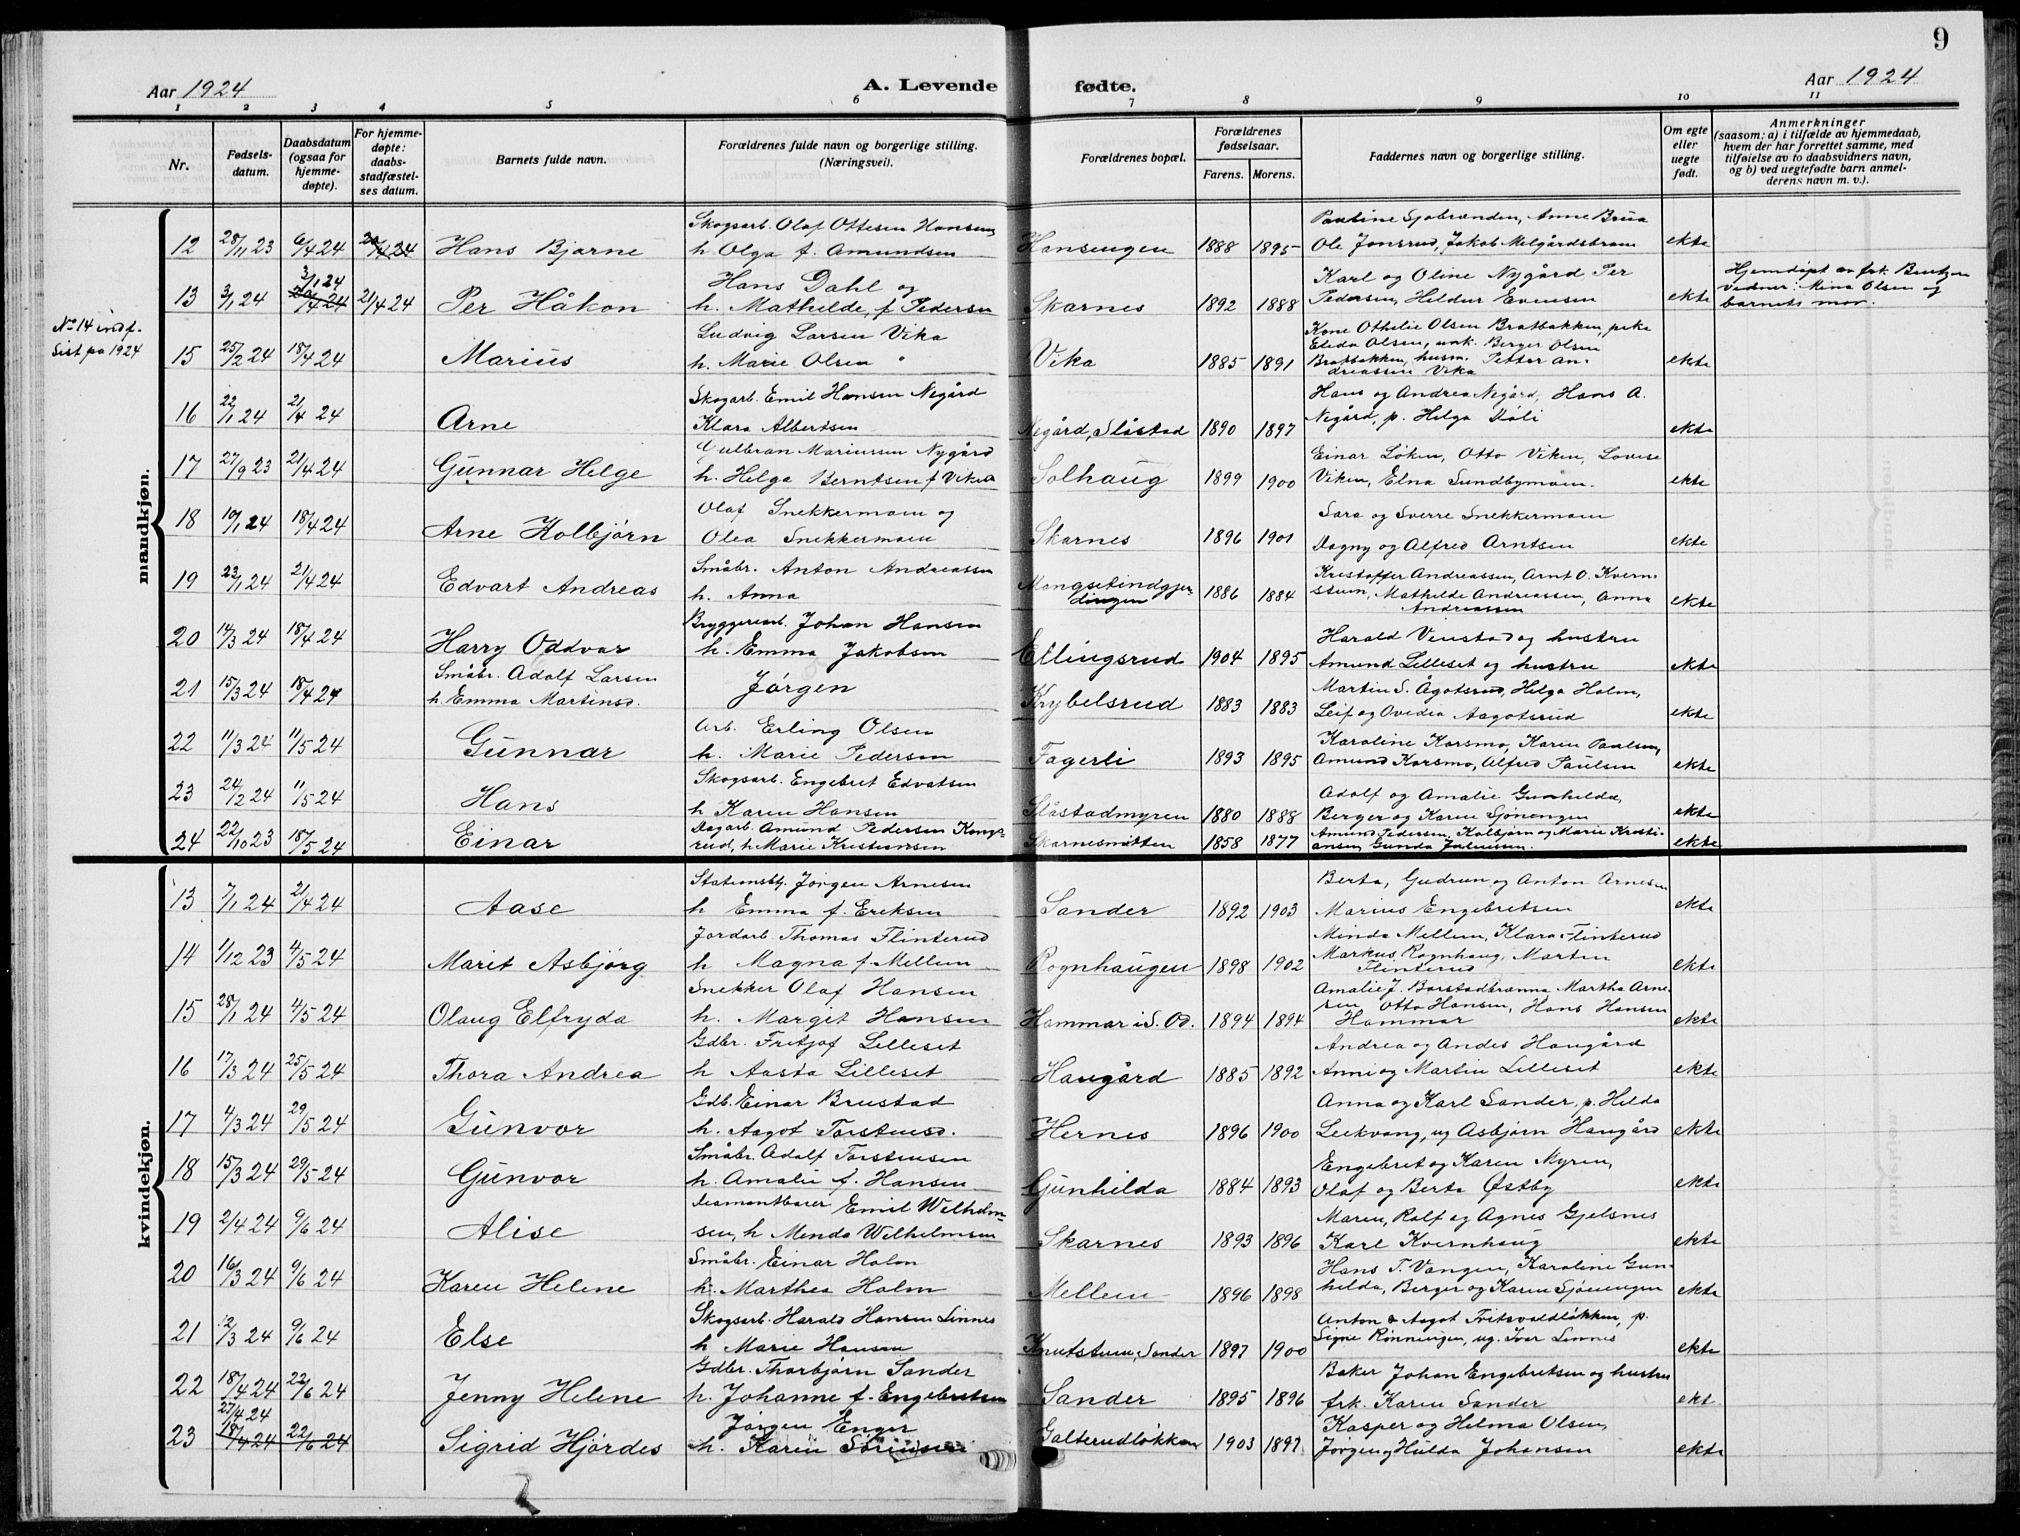 9
Aar 1924 A. Levende fødte. Aar 1924
1 2 3 4 5 6 7 8 9 10 11
Nr. | Fødsels-datum. | Daabsdatum (ogsaa for hjemme-døpte). | For hjemme-døpte: daabs-stadfæstel-ses datum. | Barnets fulde navn. | Forældrenes fulde navn og borgerlige stilling. (Næringsvei). | Forældrenes bopæl. | Forældrenes fødselsaar. Farens. Morens. | Faddernes navn og borgerlige stilling. | Om egte eller uegte født. | Anmerkninger (saasom: a) i tilfælde av hjemmedaab, hvem der har forrettet samme, med tilføielse av to daabsvidners navn, og b) ved uegtefødte barn anmel-derens navn m. v.).
mandkjøn.
12 28/11 23 6/4 24 20/4 24 Hans Bjarne Skogsarb. Olaf Ottesen Hansen h. Olga f. Amundsen Hansengen 1888 1895 Pauline Sjobrenden, Anne Brua Ole Jonsrud, Jakob Melgårdsbram ekte
13 3/1 24 3/1 24 20/4 24 21/4 24 Per Håkon Hans Dahl og h. Mathilde f. Pedersen Skarnes 1892 1888 Karl og Oline Nygård Per Pedersen, Heldur Evensen ekte Hjemdøpt av frk. Berntzen Vidner: Mina Olsen og barnets mor.
No 14 indf. Sist på 1924
15 25/2 24 18/4 24 Marius Ludvig Larsen Vika h. Marie Olsen " Vika 1885 1891 Kone Othelie Olsen Bratbakken, pike Eleda Olsen, unk. Berger Olsen Bratbakken, husm. Petter An-dreassen Vika ekte
16 22/1 24 21/4 24 Arne Skogarb. Emil Hansen Negård Klara Albertsen Negård, Slåstad 1890 1897 Hans og Andrea Negård, Hans A. Negård, p. Helga Dåli ekte
17 27/9 23 21/4 24 Gunnar Helge Gulbran Mariussen Nygård h. Helga Berntsen f Viken Solhaug 1899 1900 Einar Løken, Otto Viken, Lovise Viken, Elna Sundbymoen. ekte
18 10/1 24 18/4 24 Arne Kolbjørn Olaf Snekkermoen og Olea Snekkermoen Skarnes 1896 1901 Sara og Sverre Snekkermoen Dagny og Alfred Arntsen ekte
19 22/1 24 21/4 24 Edvart Andreas Småbr. Anton Andreassen h. Anna 1886 1884 Kristoffer Andreassen, Arnt O. Kvern-stuen, Mathilde Andreassen, Anna Andreassen ekte
20 14/3 24 18/4 24 Harry Oddvar Bryggeriarb. Johan Hansen h. Emma Jakobsen Ellingsrud 1904 1895 Harald Venstad og hustru Amund Lilleset og hustru ekte
21 15/3 24 18/4 24 Småbr. Adolf Larsen h. Emma Martinsd. Jørgen Krybelsrud 1883 1883 Martin S. Ågotsrud, Helga Holm, Leif og Ovedia Aagotsrud ekte
22 11/3 24 11/5 24 Gunnar Arb. Erling Olsen h. Marie Pedersen Fagerli 1893 1895 Karoline Korsmo, Karen Paulsen, Amund Korsmo, Alfred Paulsen ekte
23 24/2 24 11/5 24 Hans Skogsarb. Engebret Edvatsen h Karen Hansen Slåstadmyren 1880 1888 Adolf og Amalie Gunhilda, Berger og Karen Sjønengen ekte
24 22/10 23 18/5 24 Einar Dagarb. Amund Pedersen Kongs-rud, h. Marie Kristiansen Skarnesmitten 1858 1877 Amund Pedersen, Kolbjørn og Marie Kristi-ansen, Gunda Juliussen. ekte
kvindekjøn.
13 7/1 24 21/4 24 Aase Stationsbtj. Jørgen Arnesen h Emma f. Eriksen Sander 1892 1903 Berta, Gudrun og Anton Arnesen Marius Engebretsen ekte
14 1/12 23 4/5 24 Marit Asbjørg Jordarb Thomas Flinterud h Magna f. Mellem Rognhaugen 1898 1902 Minda Mellem, Klara Flinterud Markus Rognhaug, Martin Flinterud ekte
15 28/1 24 4/5 24 Olaug Elfryda Snekker Olaf Hansen h. Margit Hansen Hammar i S. Od. 1894 1894 Amalie J. Borstadbrænna Martha Arne-sen, Otto Hansen, Hans Hansen Hammar ekte
16 17/3 24 25/5 24 Thora Andrea Gdbr. Fritjof Lilleset h Aasta Lilleset Haugård 1885 1892 Andrea og Andes Haugård Anni og Martin Lilleset ekte
17 4/3 24 29/5 24 Gunvor Gdb. Einar Brustad h. Aagot Torstensd. Hernes 1896 1900 Anna og Karl Sander, p. Hilda Leekvang, ug Asbjørn Haugård ekte
18 15/3 24 29/5 24 Gunvor Småbr. Adolf Torstensen h. Amalie f. Hansen Gunhilda 1884 1893 Engebret og Karen Myren, Olaf og Berta Østby ekte
19 2/4 24 9/6 24 Alise Diamantborer Emil Wilhelm-sen, h Menda Wilhelmsen Skarnes 1893 1896 Maren, Rolf og Agnes Gjelsnes Karl Kvernhaug ekte
20 16/3 24 9/6 24 Karen Helene Småbr. Einar Holm h. Marthea Holm Mellem 1896 1898 Hans T. Vangen, Karoline Gun-hilda, Berger og Karen Sjønengen ekte
21 12/3 24 9/6 24 Else Skogsarb. Harald Hansen Linnes h Marie Hansen Knutstuen, Sander 1897 1900 Anton & Aagot Tritsvoldløkken, p. Signe Rønningen, ug. Ivar Linnes ekte
22 18/4 24 22/6 24 Jenny Helene Gdbr. Thorbjørn Sander h. Johanne f. Engebretsen Sander 1895 1896 Baker Johan Engebretsen og hustru frk. Karen Sander ekt
23 27/4 24 18/4 24 22/6 24 Sigrid Hjørdes Jørgen Enger h. Karen Sørensen Galterudløkken 1903 1897 Kasper og Helma Olsen, Jørgen og Hulda Johansen ekte